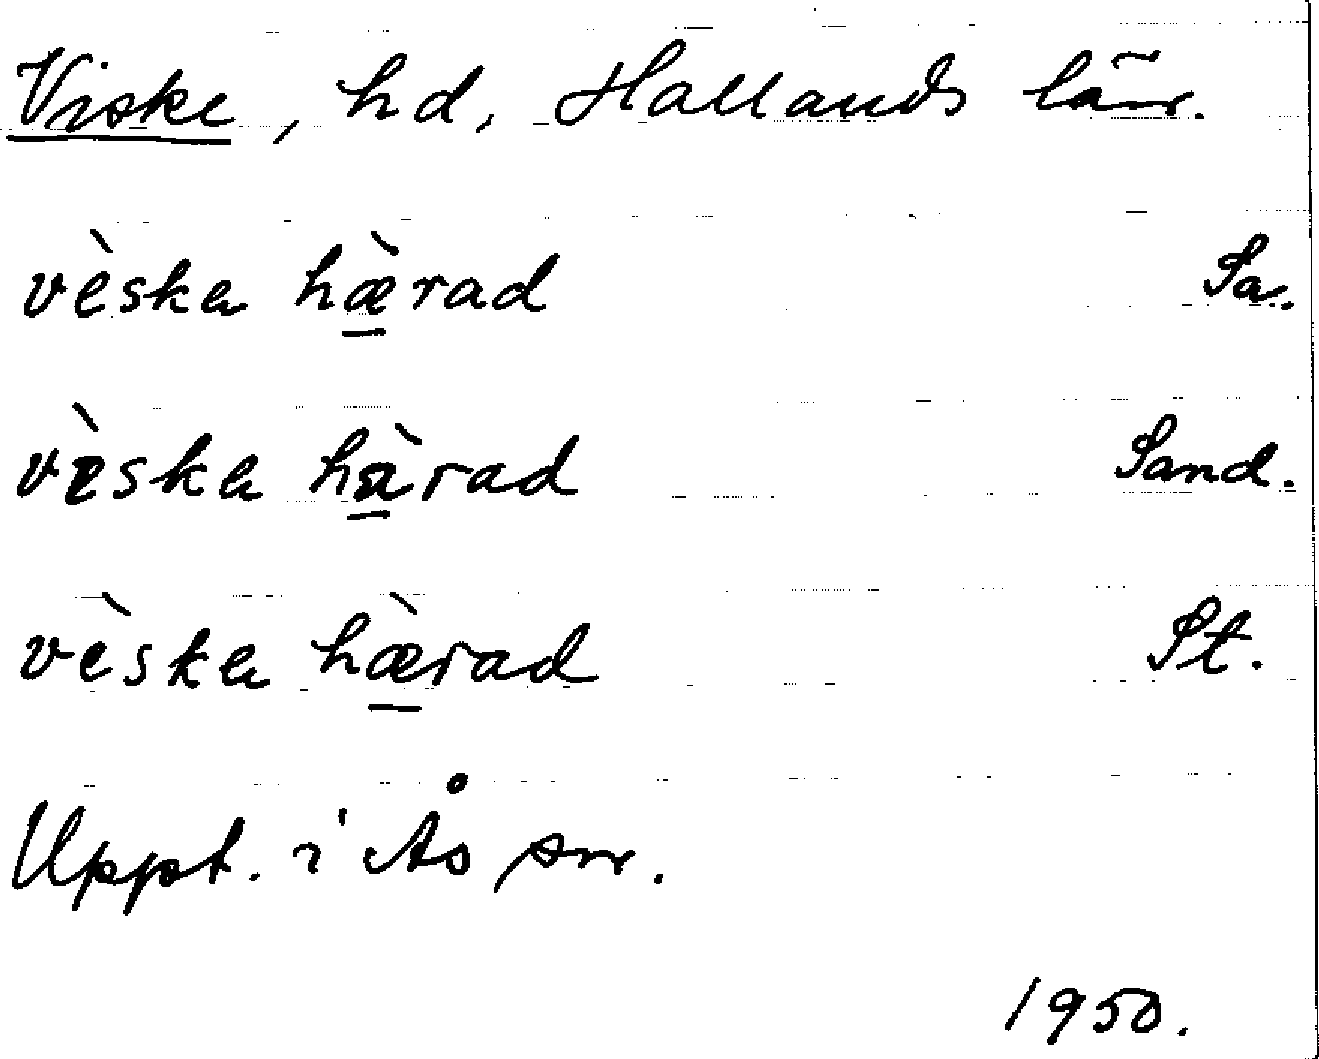 Viske, hd, Hallands län.
vèska hæ̱̀rad Sa.
vèska hæ̱̀rad Sand.
vèska hæ̱̀rad St.
Uppt. i Ås sn.
1950.